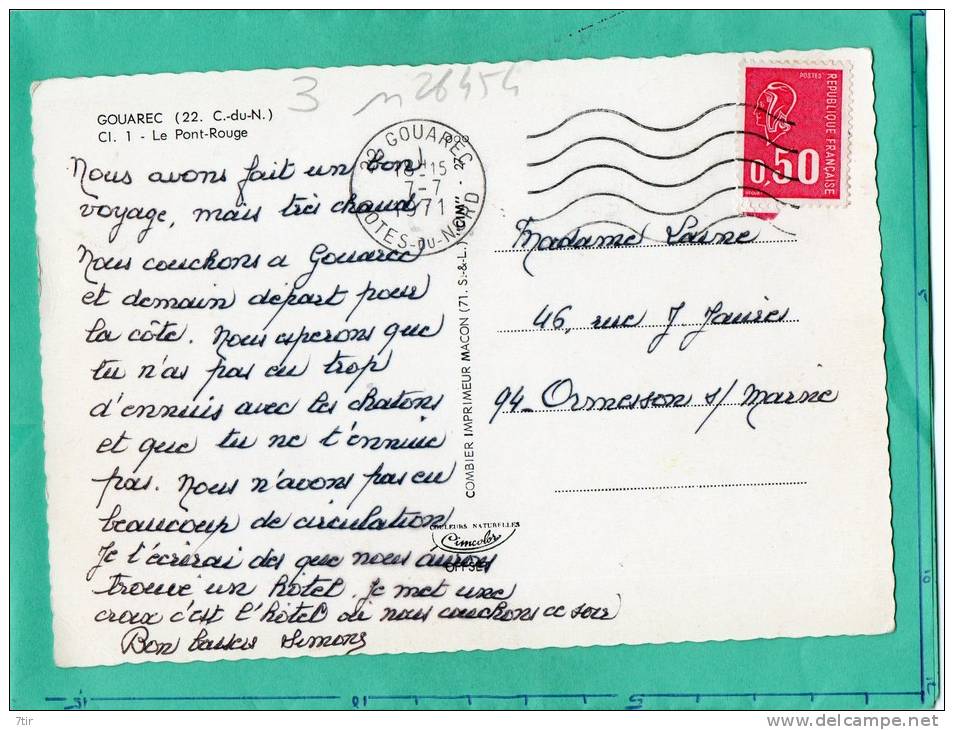 3 n 26454
GOUAREC (22. C.-du-N.)
Cl. 1 - Le Pont-Rouge
22 GOUAREC
18H15
7-7
1971
COTES-DU-NORD
POSTES
REPUBLIQUE FRANÇAISE
0,50
Nous avons fait un bon
voyage, mais très chaud
Nous couchons a Gouarec
et demain départ pour
la côte. Nous esperons que
tu n'as pas eu trop
d'ennuis avec les chatons
et que tu ne t'ennuie
pas. Nous n'avons pas eu
beaucoup de circulation
Je t'écrirai des que nous aurons
trouvé un hôtel. Je met une
croix c'est l'hôtel où nous couchons ce soir
Bon baisers Simone
COMBIER IMPRIMEUR MACON (71. S.-&-L.) "CIM"
COULEURS NATURELLES
Cimcolor
OFFSET
Madame Laine
46, rue J. Jaurès
94_ Ormesson s/ Marne
15
10
5
5
10
7tir
delcampe.net